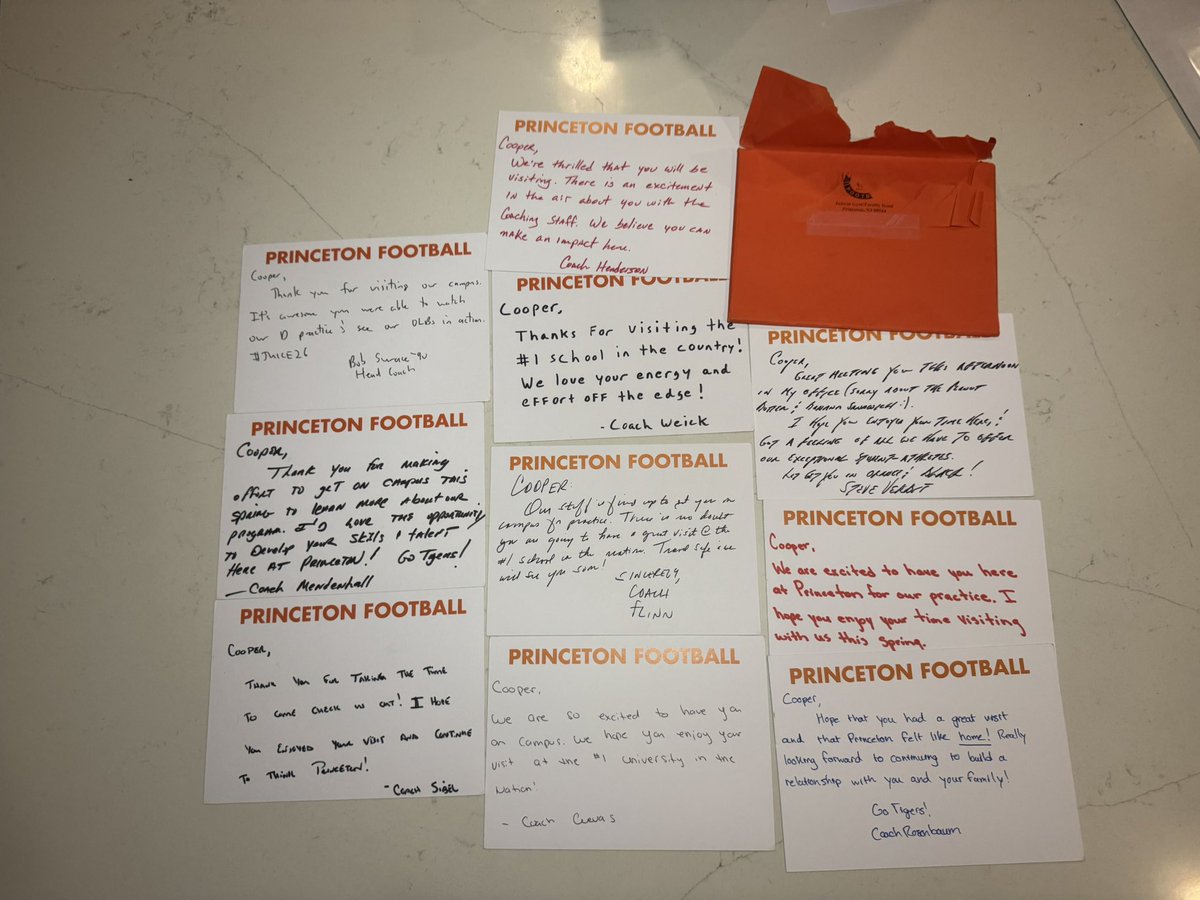 PRINCETON FOOTBALL
Cooper,
We're thrilled that you will be
visiting. There is an excitement
in the air about you with the
Coaching Staff. We believe you can
make an impact here.
Coach Henderson
PRINCETON FOOTBALL
Cooper,
Thank you for visiting our campus.
It's awesome you were able to watch
our D practice & see our OLBs in action.
#JUICE26
Bob Surace '90
Head Coach
PRINCETON FOOTBALL
Cooper,
Thanks for visiting the
#1 school in the country!
We love your energy and
effort off the edge!
- Coach Weick
PRINCETON FOOTBALL
Cooper,
Great meeting you this afternoon
in my office (sorry about the Peanut
Butter & Banana Sandwich :).
I hope you enjoyed your time here, &
got a feeling of all we have to offer
our exceptional student-athletes.
Let's get you in orange & black!
Steve Verbit
PRINCETON FOOTBALL
Cooper,
Thank you for making
effort to get on campus this
spring to learn more about our
program. I'd love the opportunity
to develop your skills & talent
here at Princeton! Go Tigers!
— Coach Mendenhall
PRINCETON FOOTBALL
COOPER:
Our staff is fired up to get you on
campus for practice. There is no doubt
you are going to have a great visit @ the
#1 school in the nation. Travel safe &
will see you soon!
SINCERELY,
COACH
FLINN
PRINCETON FOOTBALL
Cooper,
We are excited to have you here
at Princeton for our practice. I
hope you enjoy your time visiting
with us this spring.
PRINCETON FOOTBALL
Cooper,
Thank you for taking the time
to come check us out! I hope
you enjoyed your visit and continue
to think Princeton!
- Coach Sigel
PRINCETON FOOTBALL
Cooper,
We are so excited to have you
on campus. We hope you enjoy your
visit at the #1 University in the
Nation!
- Coach Cuevas
PRINCETON FOOTBALL
Cooper,
Hope that you had a great visit
and that Princeton felt like home! Really
looking forward to continuing to build a
relationship with you and your family!
Go Tigers!
Coach Rosenbaum